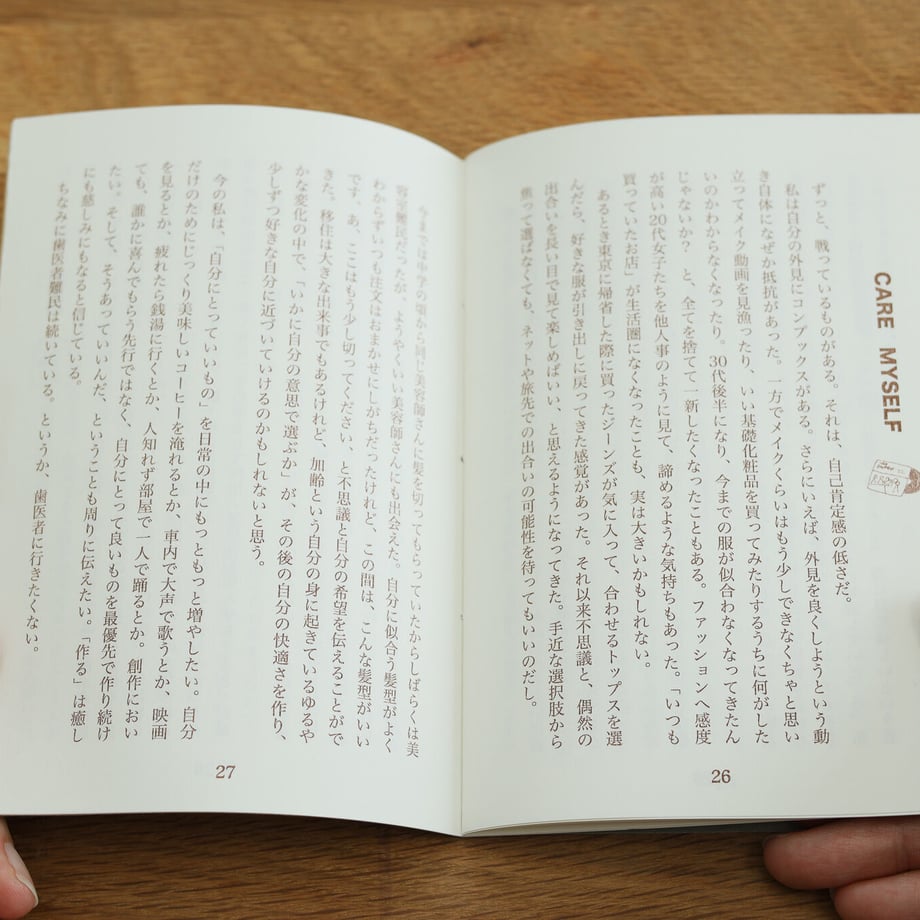 CARE MYSELF
ずっと、戦っているものがある。それは、自己肯定感の低さだ。
私は自分の外見にコンプックスがある。さらにいえば、外見を良くしようという動
き自体になぜか抵抗があった。一方でメイクくらいはもう少しできなくちゃと思い
立ってメイク動画を見漁ったり、いい基礎化粧品を買ってみたりするうちに何がした
いのかわからなくなったり。30代後半になり、今までの服が似合わなくなってきたん
じゃないか? と、全てを捨てて一新したくなったこともある。ファッションへ感度
が高い20代女子たちを他人事のように見て、諦めるような気持ちもあった。「いつも
買っていたお店」が生活圏になくなったことも、実は大きいかもしれない。
あるとき東京に帰省した際に買ったジーンズが気に入って、合わせるトップスを選
んだら、好きな服が引き出しに戻ってきた感覚があった。それ以来不思議と、偶然の
出合いを長い目で見て楽しめばいい、と思えるようになってきた。手近な選択肢から
焦って選ばなくても、ネットや旅先での出合いの可能性を待ってもいいのだし。
26
今までは中学の頃から同じ美容師さんに髪を切ってもらっていたからしばらくは美
容室難民だったが、ようやくいい美容師さんにも出会えた。自分に似合う髪型がよく
わからずいつも注文はおまかせにしがちだったけれど、この間は、こんな髪型がいい
です、あ、ここはもう少し切ってください、と不思議と自分の希望を伝えることがで
きた。移住は大きな出来事でもあるけれど、加齢という自分の身に起きているゆるや
かな変化の中で、「いかに自分の意思で選ぶか」が、その後の自分の快適さを作り、
少しずつ好きな自分に近づいていけるのかもしれないと思う。
今の私は、「自分にとっていいもの」を日常の中にもっともっと増やしたい。自分
だけのためにじっくり美味しいコーヒーを淹れるとか、車内で大声で歌うとか、映画
を見るとか、疲れたら銭湯に行くとか、人知れず部屋で一人で踊るとか。創作におい
ても、誰かに喜んでもらう先行ではなく、自分にとって良いものを最優先で作り続け
たい。そして、そうあっていいんだ、ということも周りに伝えたい。「作る」は癒し
にも慈しみにもなると信じている。
ちなみに歯医者難民は続いている。というか、歯医者に行きたくない。
27